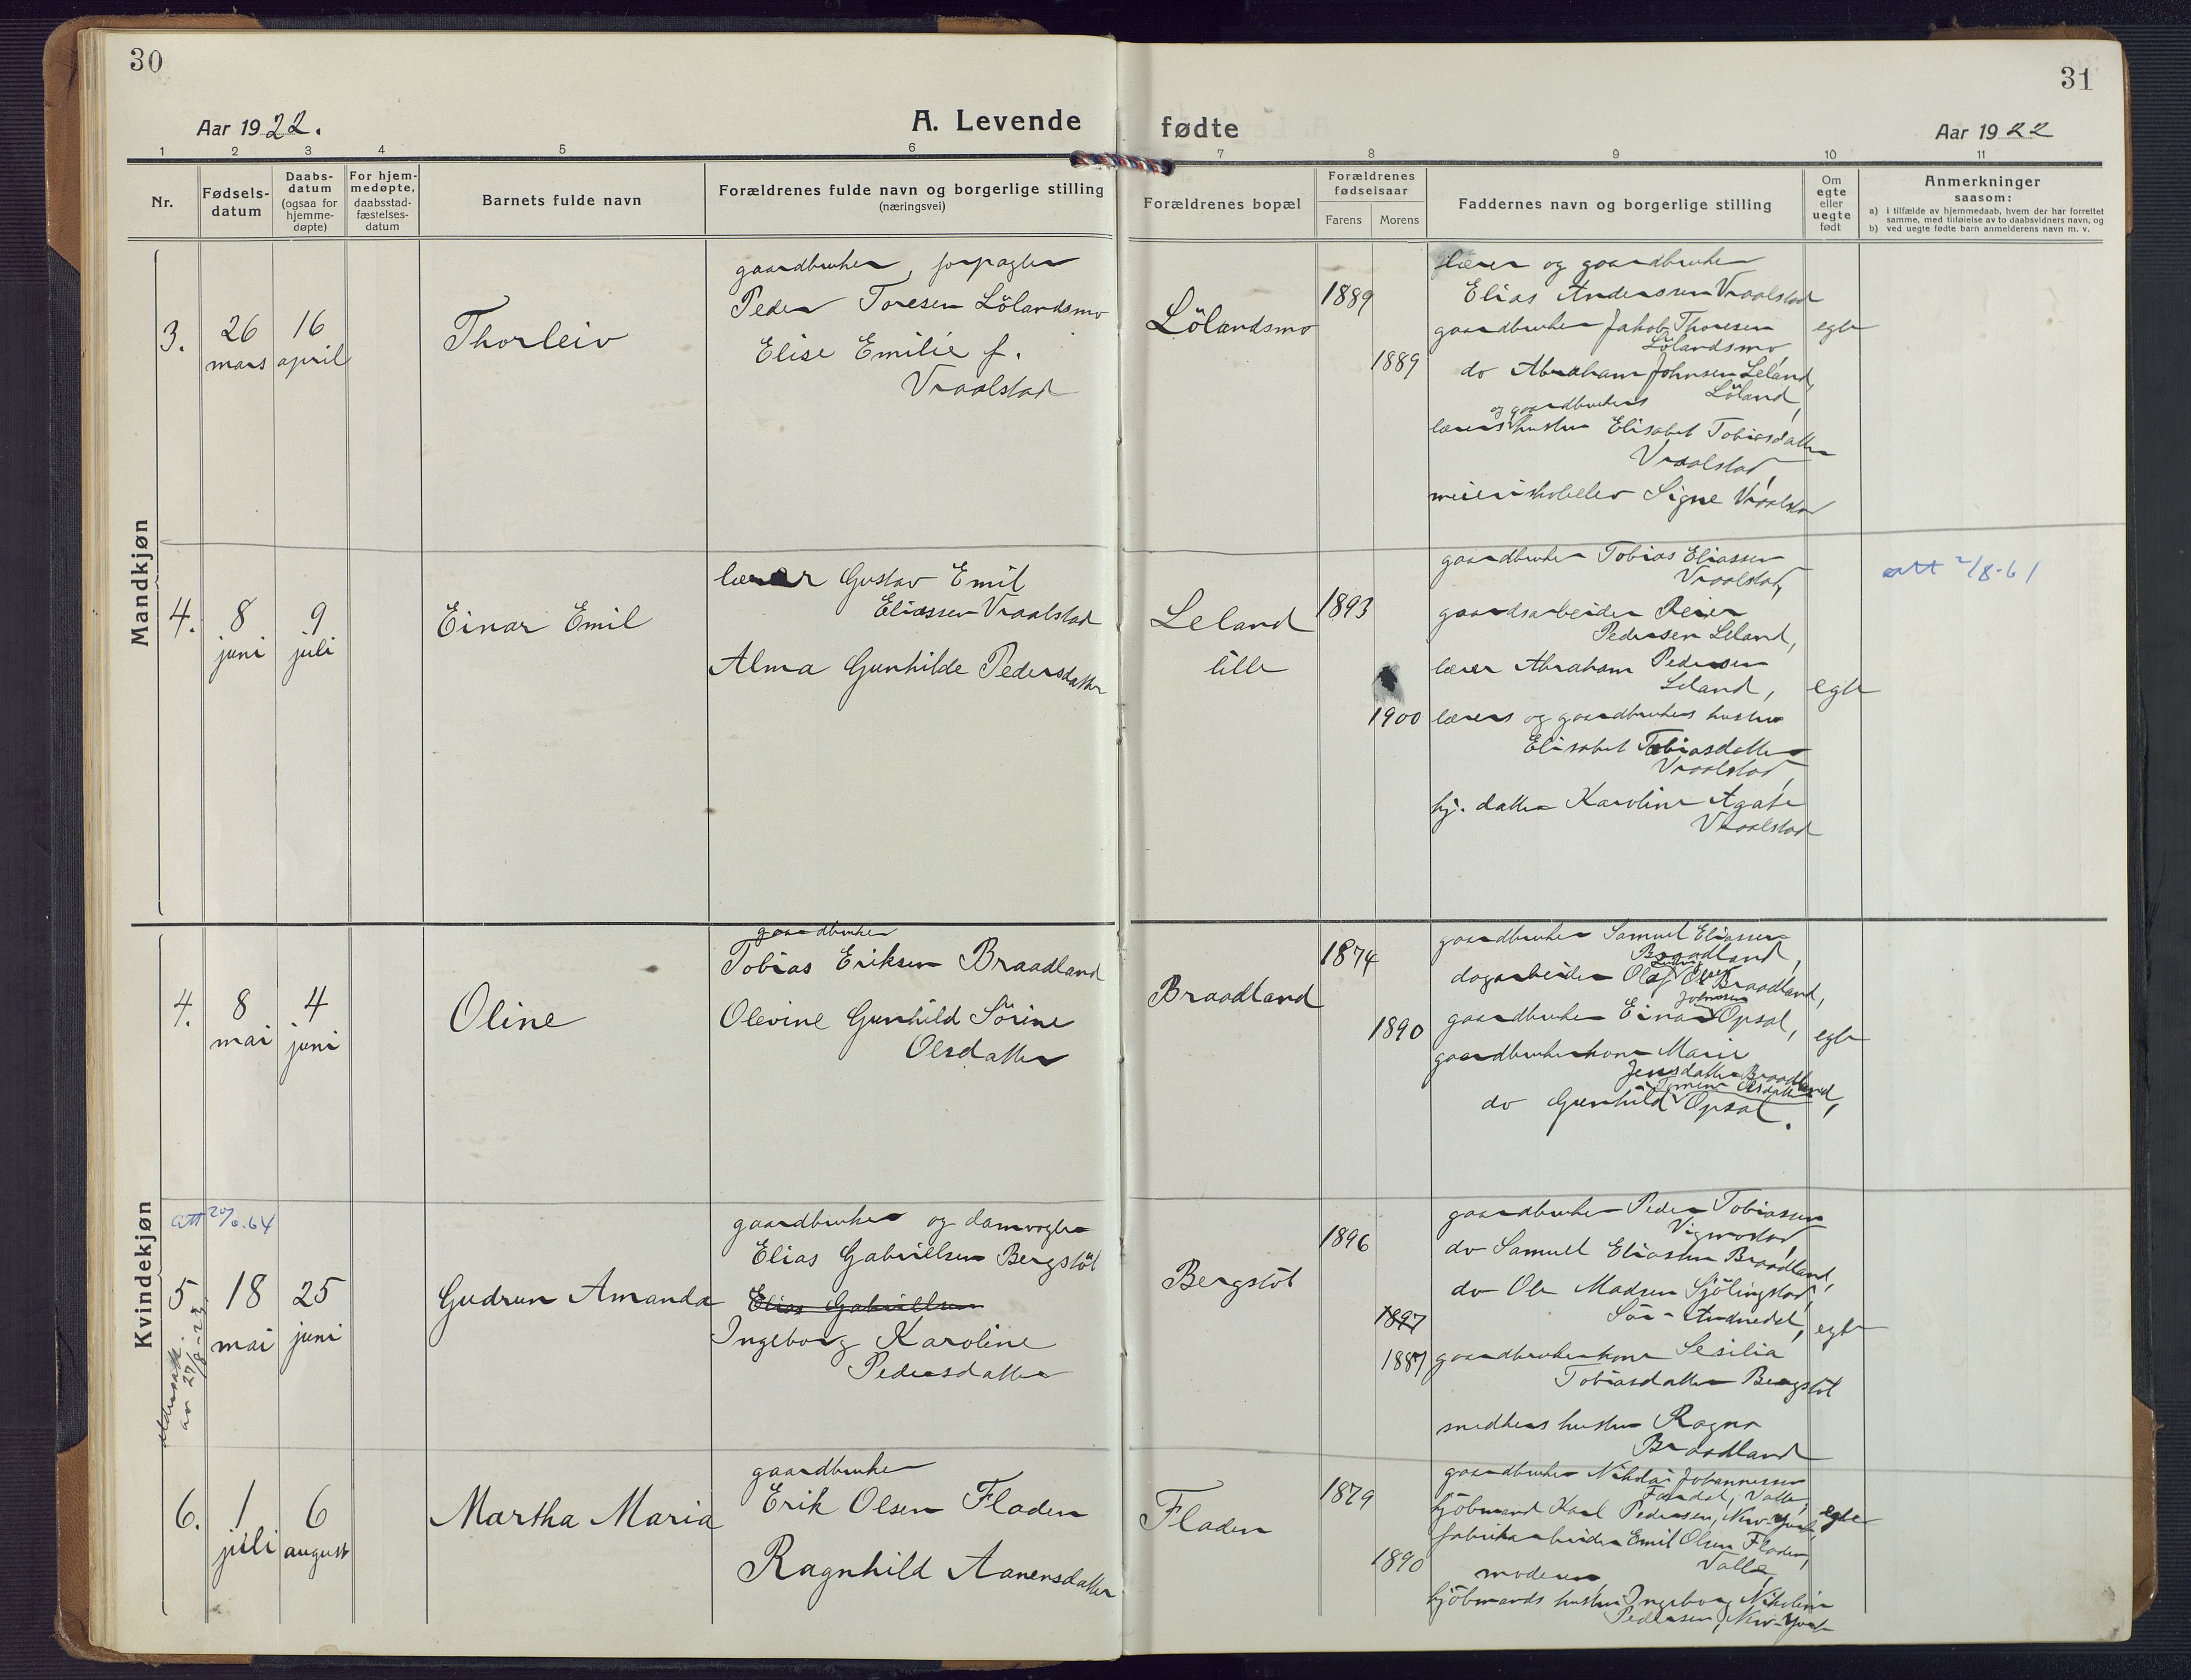 30
31
Aar 1922.
A. Levende
fødte
Aar 1922
1 2 3 4 5 6 7 8 9 10 11
Nr.
Fødsels-
datum
Daabs-
datum
(ogsaa for
hjemme-
døpte)
For hjem-
medøpte,
daabsstad-
fæstelses-
datum
Barnets fulde navn
Forældrenes fulde navn og borgerlige stilling
(næringsvei)
Forældrenes bopæl
Forældrenes
fødselsaar
Farens
Morens
Faddernes navn og borgerlige stilling
Om
egte
eller
uegte
født
Anmerkninger
saasom:
a) i tilfælde av hjemmedaab, hvem der har forrettet
samme, med tilføielse av to daabsvidners navn, og
b) ved uegte fødte barn anmelderens navn m. v.
Mandkjøn
3.
26
mars
16
april
Thorleiv
gaardbruker, forpagter
Peder Toresen Lölandsmo
Elise Emilie f.
Vraalstad
Lölandsmo
1889
1889
lærer og gaardbruker
Elias Anderssen Vraalstad
gaardbruker Jakob Thoresen
Lölandsmo
do Abraham Johnsen Leland,
Löland,
og gaardbrukers
lærers hustru Elisabet Tobiasdatter
Vraalstad,
meieriskoleelev Signe Vraalstad
egte
4.
8
juni
9
juli
Einar Emil
lærer Gustav Emil
Eliassen Vraalstad
Alma Gunhilde Pedersdatter
Leland
lille
1893
1900
gaardbruker Tobias Eliassen
Vraalstad,
gaardsarbeider Peier
Pedersen Leland,
lærer Abraham Pedersen
Leland,
lærers og gaardbrukers hustru
Elisabet Tobiasdatter
Vraalstad,
hj. datter Karoline Agate
Vraalstad
egte
att 2/8-61
Kvindekjøn
4.
8
mai
4
juni
Oline
gaardbruker
Tobias Eriksen Braadland
Olevine Gunhild Sörine
Olsdatter
Braadland
1874
1890
gaardbruker Samuel Eliassen
Braadland,
dagarbeider Olaf Olsen Braadland,
Johnsen
gaardbruker Einar Opsal,
gaardbrukerkone Marie
Jensdatter Braadland,
Tomine Olsdatter
do Gunhild Opsal.
egte
att 20/6.64
5.
18
mai
25
juni
aldersatt.
av 27/8-23.
Gudrun Amanda
gaardbruker og damvogter
Elias Gabrielsen Bergstöl
Elias Gabrielsen
Ingeborg Karoline
Pedersdatter
Bergstöl
1896
1897
1887
gaardbruker Peder Tobiassen
Vigmostad
do Samuel Eliassen Braadland,
do Ole Madsen Sjölingstad,
Sör-Audnedal,
gaardbrukerkone Sesilia
Tobiasdatter Bergstöl
smedkers hustru Ragna
Braadland
egte
6.
1
juli
6
august
Martha Maria
gaardbruker
Erik Olsen Fladen
Ragnhild Aanensdatter
Fladen
1879
1890
gaardbruker Nikolai Johannessen
Faadal, Valle,
kjöbmand Karl Pedersen, New-York,
fabrikarbeider Emil Olsen Fladen,
Valle,
moderen
kjöbmands hustru Ingeborg Nikoline
Pedersen, New-York
egte